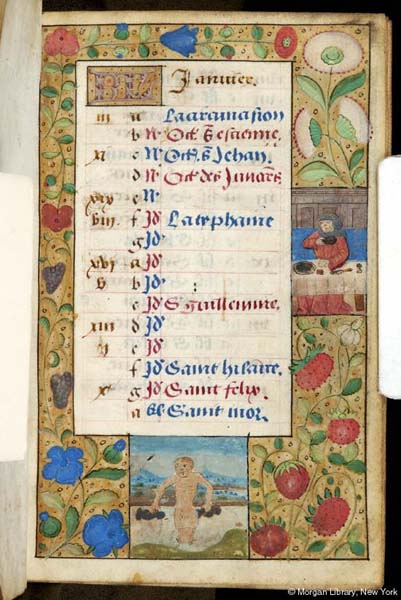 KL Januier.
iii A La circuncision
b N Oct. S. estienne.
xi c N Oct. S. Jehan.
d N Oct des Innocens
xix e N
viii f Id La epphanie
g Id
xvi a Id
v b Id
c Id S guillemme.
xiii d Id
ii e Id
f Id Saint hilaire.
x g Id Saint felix.
a kl Saint mor.
© Morgan Library, New York